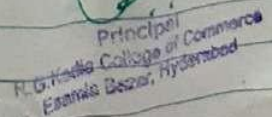 Principal
R.G. Kedia College of Commerce
Esamia Bazar, Hyderabad